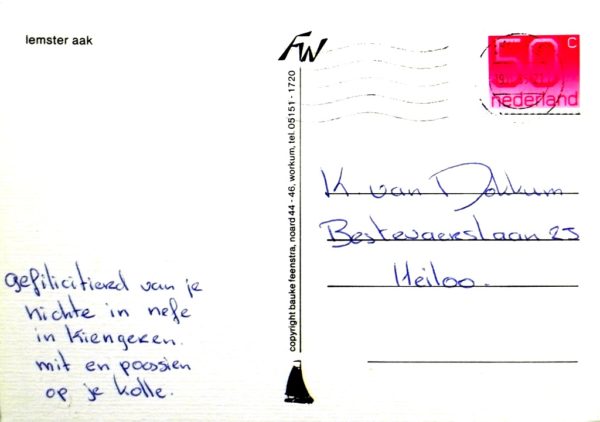 lemster aak
FW
50 c
nederland
copyright bauke feenstra, noard 44 - 46, workum, tel. 05151 - 1720
K. van Dokkum
Bestevaerstaan 25
Heiloo.
gefiliciteerd van je
nichte in nefe
in Kiengeren.
mit en poossien
op je kolle.